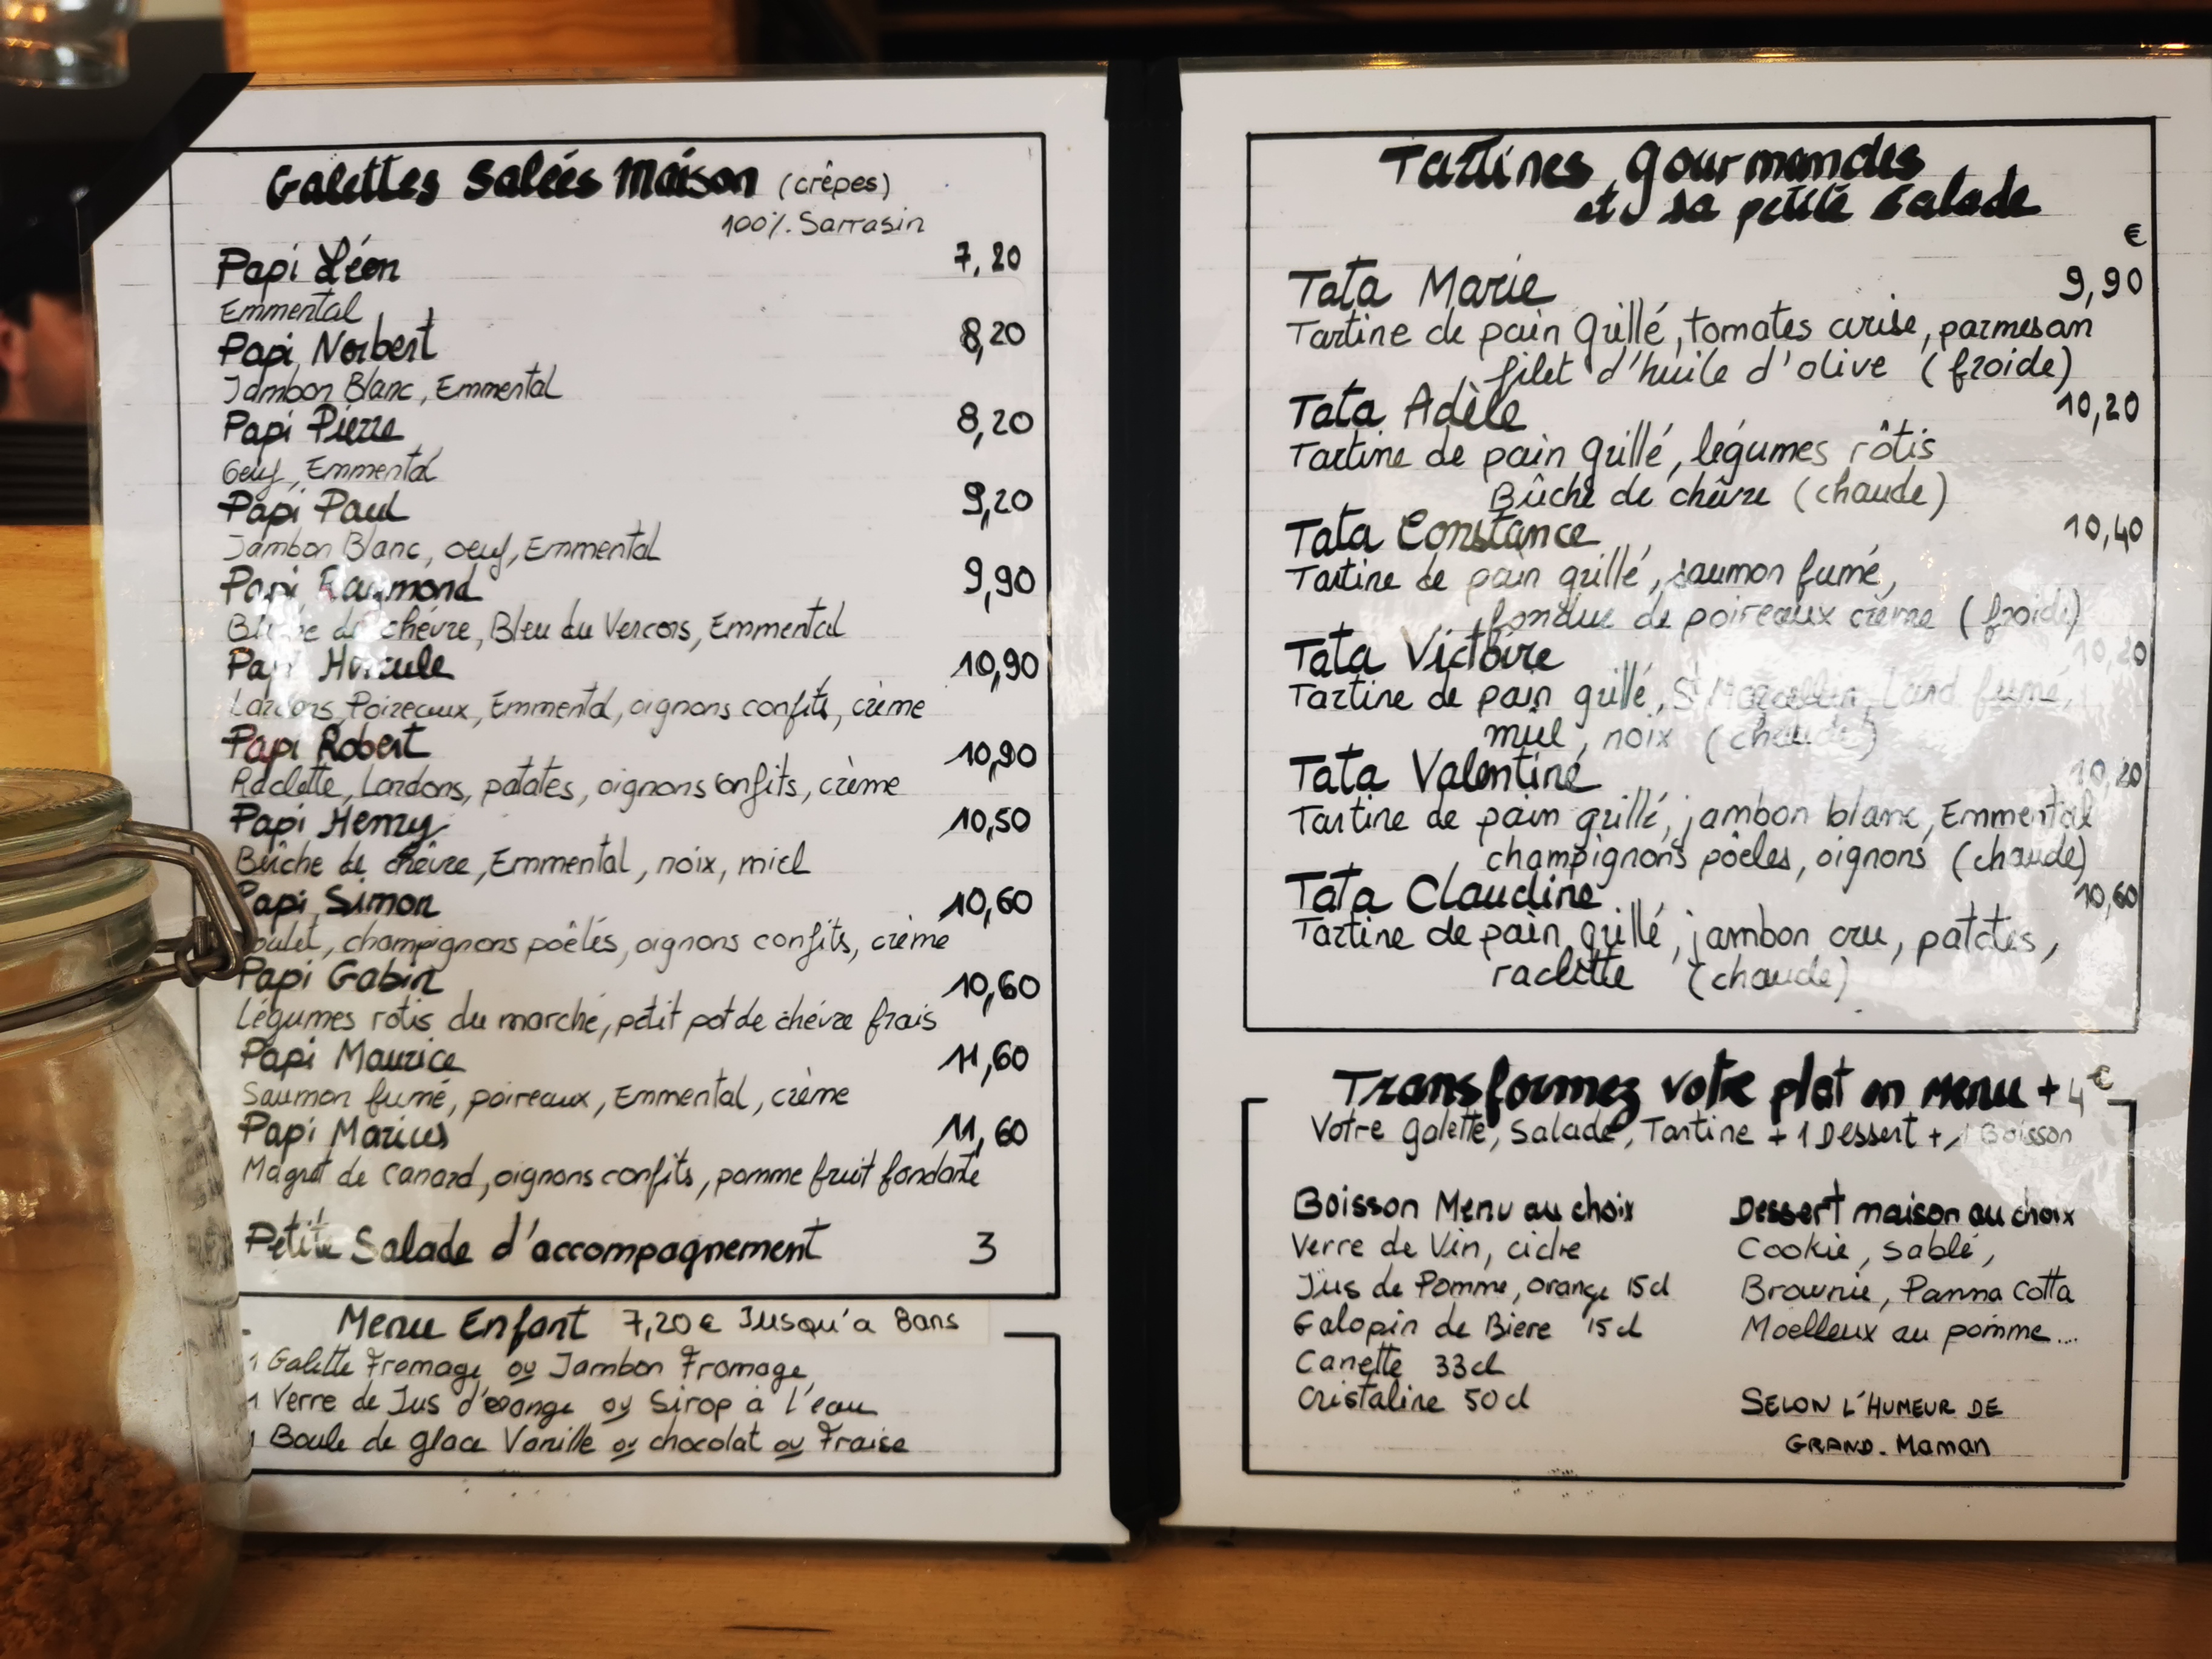 Galettes Salées Maison (crêpes)
100% Sarrasin
Papi Léon 7,20
Emmental
Papi Norbert 8,20
Jambon Blanc, Emmental
Papi Pierre 8,20
Oeuf, Emmental
Papi Paul 9,20
Jambon Blanc, oeuf, Emmental
Papi Raymond 9,90
Bûche de chévre, Bleu du Vercors, Emmental
Papi Hercule 10,90
Lardons, Poireaux, Emmental, oignons confits, crème
Papi Robert 10,90
Raclette, Lardons, patates, oignons confits, crème
Papi Henry 10,50
Bûche de chèvre, Emmental, noix, miel
Papi Simon 10,60
oulet, champignons poêlés, oignons confits, crème
Papi Gabin 10,60
Légumes rotis du marché, petit pot de chévre frais
Papi Maurice 11,60
Saumon fumé, poireaux, Emmental, crème
Papi Marius 11,60
Magret de Canard, oignons confits, pomme fruit fondante
Petite Salade d'accompagnement 3
Menu Enfant 7,20€ Jusqu'a 8ans
1 Galette Fromage ou Jambon Fromage
1 Verre de Jus d'orange ou Sirop à l'eau
1 Boule de glace Vanille ou chocolat ou Fraise
Tartines gourmandes
et sa petite salade
€
Tata Marie 9,90
Tartine de pain grillé, tomates cerise, parmesan
filet d'huile d'olive (froide)
Tata Adèle 10,20
Tartine de pain grillé, légumes rôtis
Bûche de chêvre (chaude)
Tata Constance 10,40
Tartine de pain grillé, saumon fumé,
fondue de poireaux crème (froide)
Tata Victoire 10,20
Tartine de pain grillé, St Marcellin, Lard fumé,
miel, noix (chaude)
Tata Valentine 10,20
Tartine de pain grillé, jambon blanc, Emmental
champignons pôeles, oignons (chaude)
Tata Claudine 10,60
Tartine de pain grillé, jambon cru, patates,
raclette (chaude)
Transformez votre plat en menu + 4€
Votre galette, Salade, Tartine + 1 Dessert + 1 Boisson
Boisson Menu au choix
Verre de Vin, cidre
Jus de Pomme, orange 15cl
Galopin de Biere 15cl
Canette 33cl
Cristaline 50cl
Dessert maison au choix
Cookie, sablé,
Brownie, Panna Cotta
Moelleux au pomme...
SELON L'HUMEUR DE
GRAND-Maman